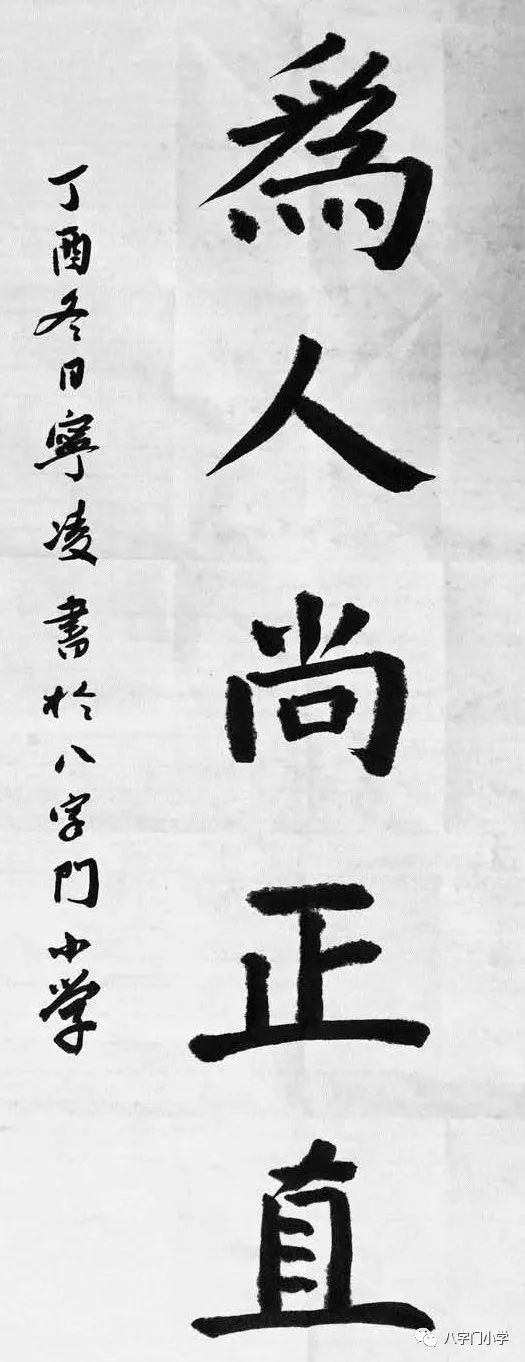 為人尚正直
丁酉冬日寧凌書於八字門小学
八字门小学